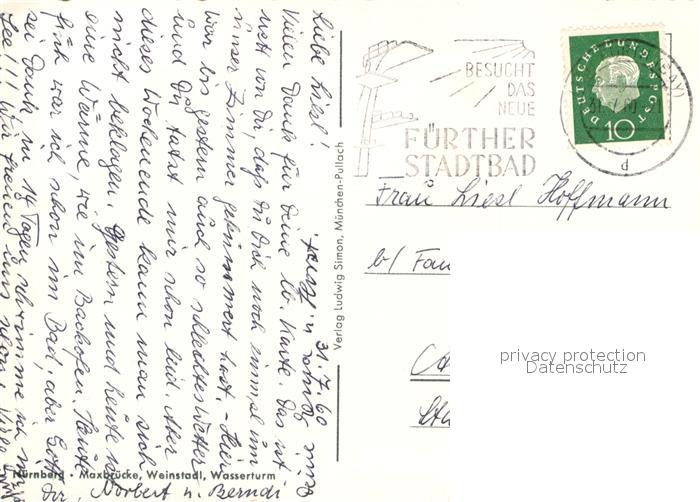 Liebe Liesl!
Vielen Dank für Deine lb. Karte. Das ist
nett von Dir, daß Du Dich noch einmal um
Zimmer gekümmert hast. - Hier
war bis gestern auch so schlechtes Wetter
und Du tatst mir schon leid. Aber
dieses Wochenende kann man sich
nicht beklagen. Gestern und heute so
eine Wärme, wie im Backofen. Heute
früh war ich schon im Bad, aber Gott
sei Dank in 14 Tagen schwimme ich im
See!!! Wir freuen uns schon. Viele
31.7.60
Norbert u. Berndi
Nürnberg · Maxbrücke, Weinstadl, Wasserturm
Verlag Ludwig Simon, München-Pullach
BESUCHT
DAS
NEUE
FÜRTHER
STADTBAD
DEUTSCHE BUNDESPOST
10
(BAY)
31.7.60
d
Frau Liesl Hoffmann
b/ Fam
privacy protection
Datenschutz